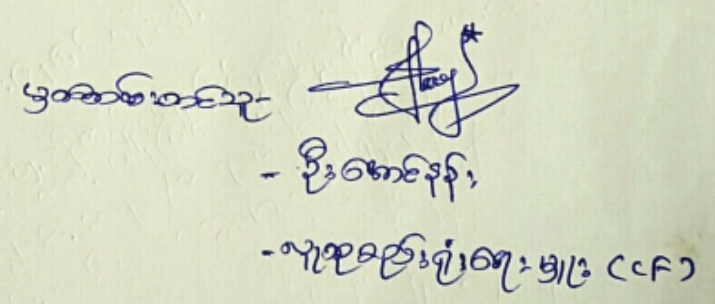 မှတ်တမ်းတင်သူ-
- ဦးအောင်နန်း
- လူထုစည်းရုံးရေးမှူး (CF)